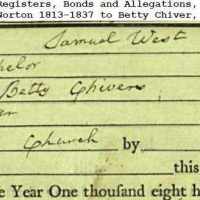 Registers, Bonds and Allegations,
Norton 1813-1837 to Betty Chiver,
Samuel West
helor
Betty Chivers
er
Church by
this
e Year One thouſand eight h